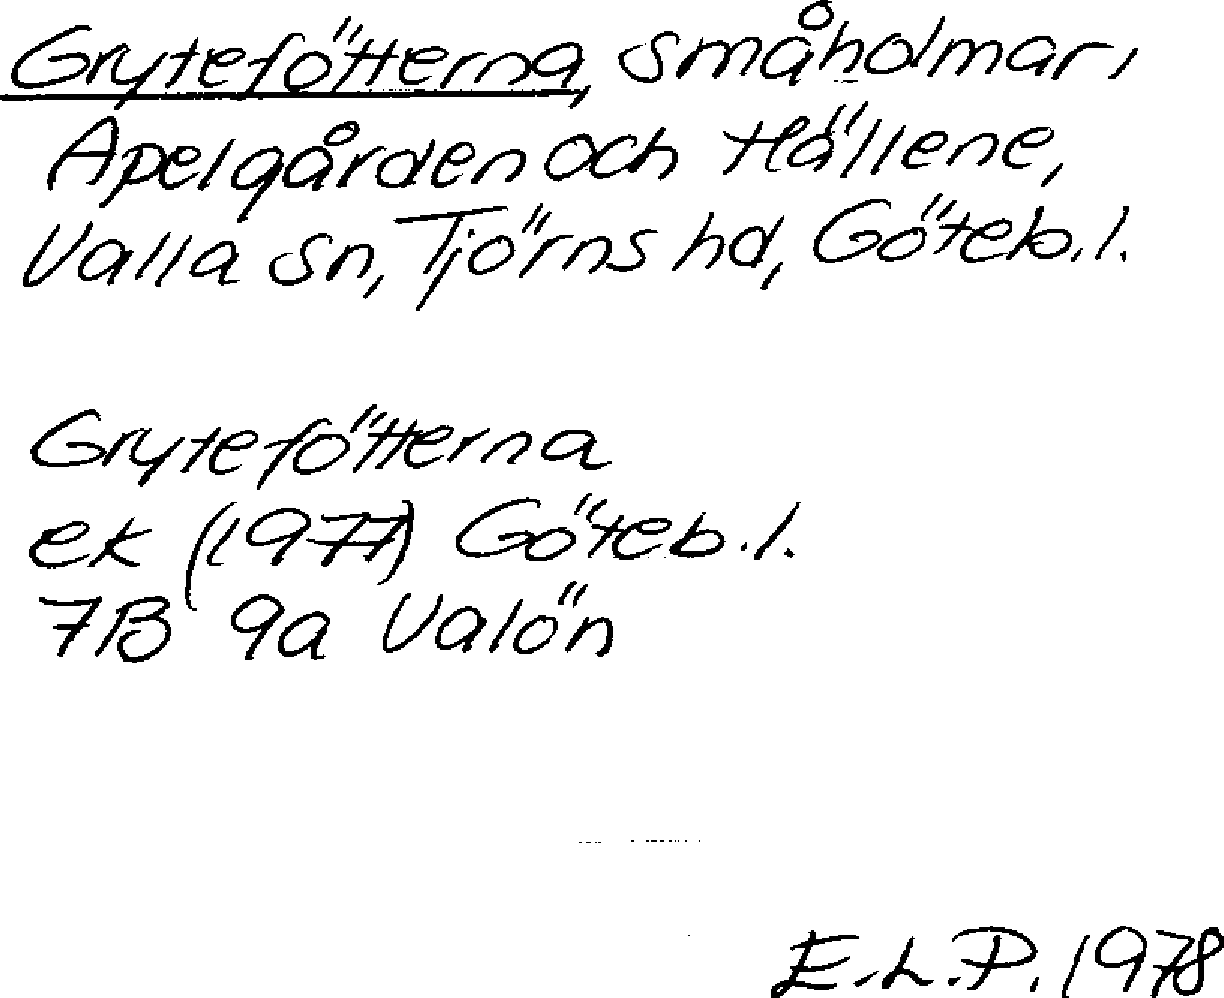 Grytefötterna, småholmar,
Apelgården och Hällene,
Valla sn, Tjörns hd, Göteb.l.
Gryteföttterna
ek (1977) Göteb.l.
7B 9a Valön
E.L.P. 1978